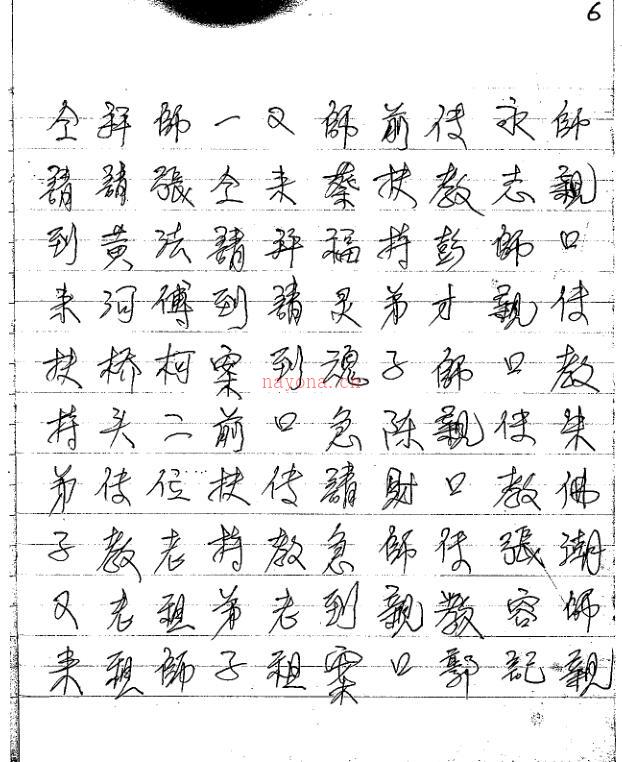 6
師親口传教朱佛潮師親
永志師親口传教張容記
传教彭才師親口传教郭
前扶持弟子陈財師親口
師蔡福灵魂急請急到案
又来拜請到口传教老祖
一仝請到案前扶持弟子
師張法傅柯二位老祖師
拜請黄河桥头传教老祖
仝請到来扶持弟子又来
nayona.cn